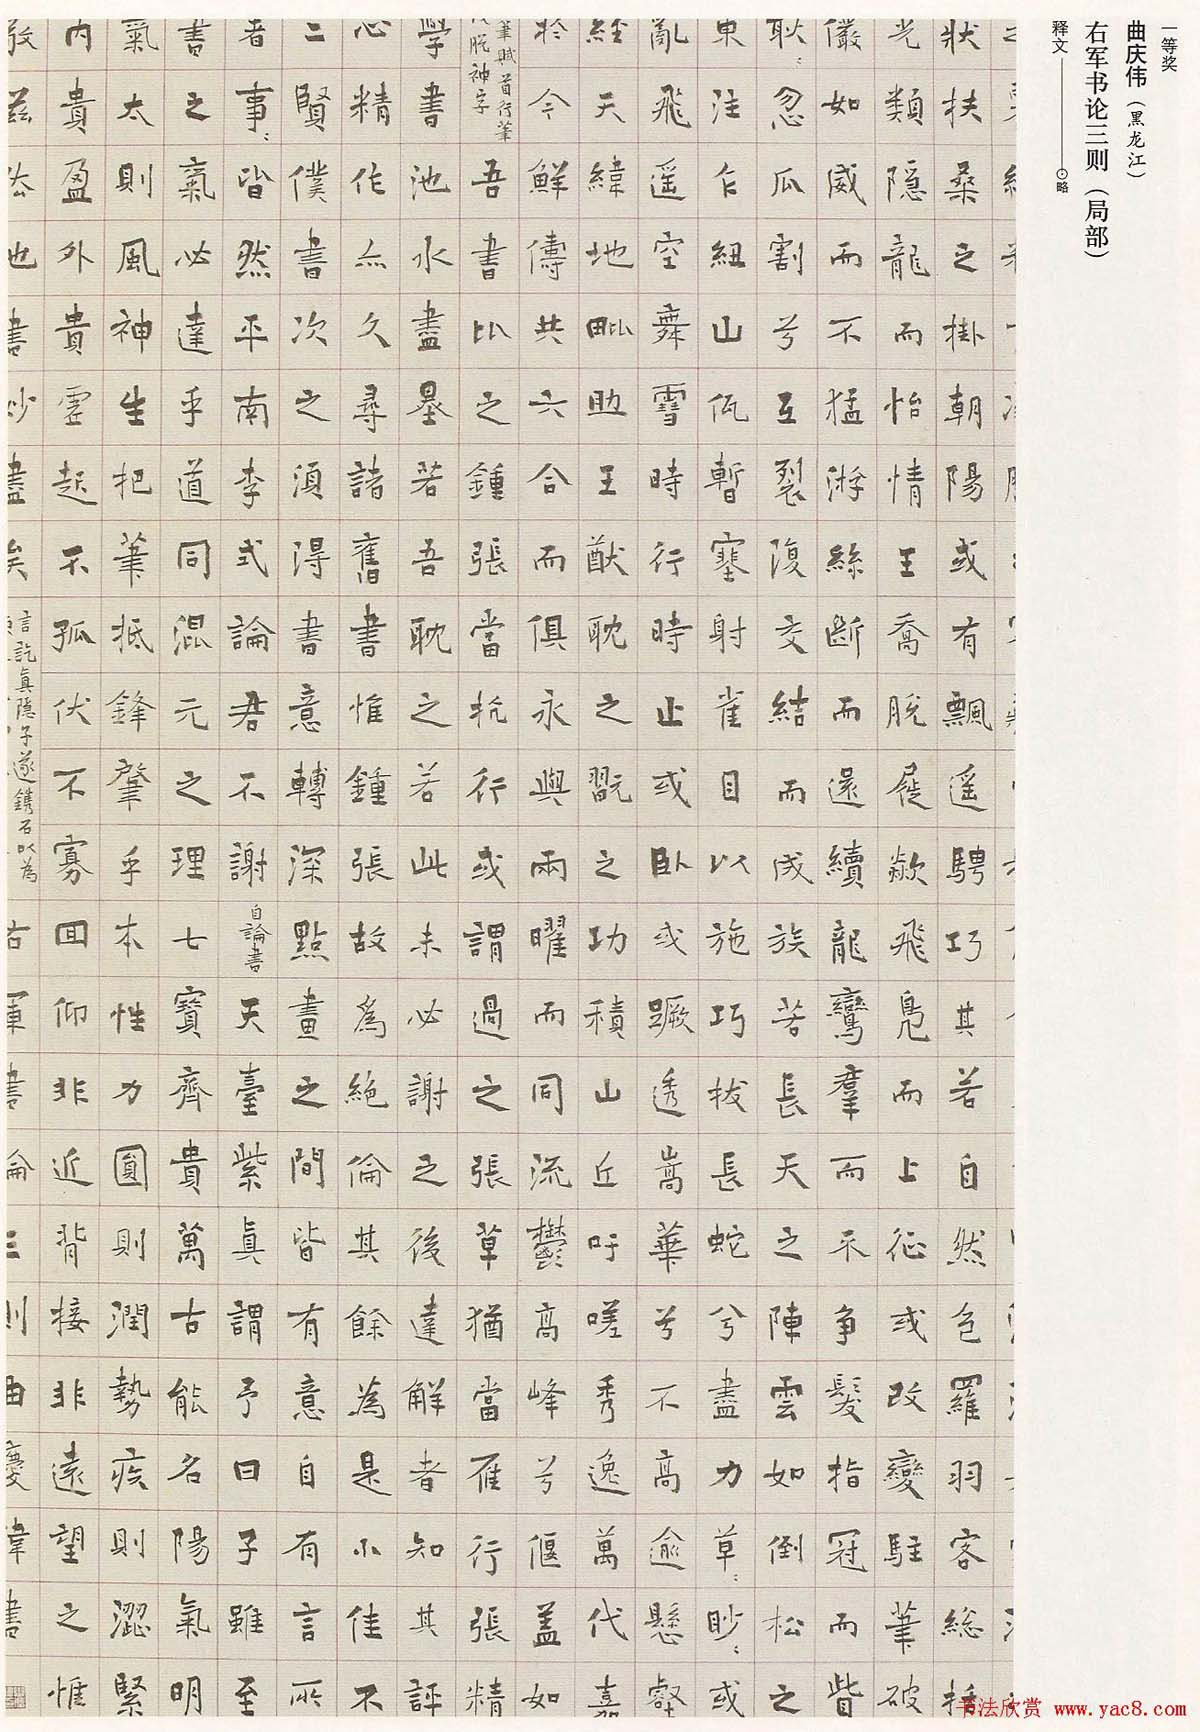 一等奖
曲庆伟（黑龙江）
右军书论三则（局部）
释文——略
狀扶桑之掛朝陽或有飄遥騁巧其若自然包羅羽客総括
光類隠龍而怡情王喬脱屣欻飛鳧而上征或改變駐筆破
儼如威而不猛游絲斷而還續龍鸞羣而不争髮指冠而眥
耿〻忽瓜割兮互裂復交結而成族若長天之陣雲如倒松之
東注乍紐山暫塞射雀目以施巧拔長蛇兮盡力草〻眇〻或
亂飛遥空舞雪時行時止或卧或蹶透嵩華兮不高逾懸壑
經天緯地毗助王猷耽之翫之功積山丘吁嗟秀逸萬代嘉
於今鮮儔共六合而俱永與兩曜而同流鬱高峰兮偃盖如
筆賦首行筆
脱神字
吾書比之鍾張當抗行或謂過之張草猶當雁行張精
學書池水盡墨若吾耽之若此未必謝之後達解者知其評
心精作亦久尋諸舊書惟鍾張故爲絶倫其餘為是小佳不
二賢僕書次之須得書意轉深點畫之間皆有意自有言所
者事〻皆然平南李式論君不謝自論書天臺紫眞謂予曰子雖至
書之氣必達乎道同混元之理七寶齊貴萬古能名陽氣明
氣太則風神生把筆抵鋒肇乎本性力圓則潤勢疾則澀緊
内貴盈外貴虚起不孤伏不寡回仰非近背接非遠望之惟
敬兹法也書妙盡矣
言訖眞隱子遂鐫石以為
右軍書論三則曲慶偉書
书法欣赏 www.yac8.com